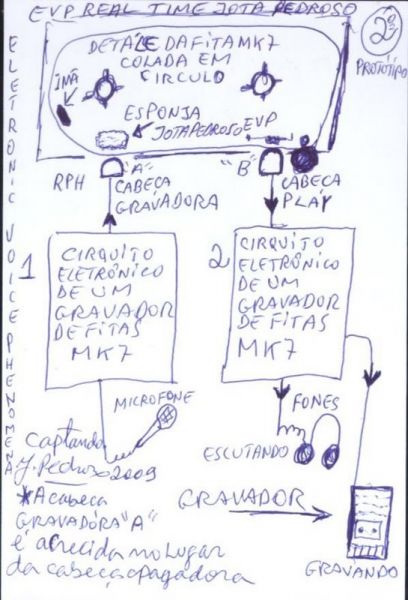 EVP REAL TIME JOTA PEDROSO
2º
PROTÓTIPO
ELETRONIC VOICE PHENOMENA
DETALE DA FITA MK7
COLADA EM
CIRCULO
IMÃ
ESPONJA
JOTAPEDROSO EVP
RPH
"A"
CABEÇA
GRAVADORA
"B"
CABEÇA
PLAY
1
CIRQUITO
ELETRÔNICO
DE UM
GRAVADOR
DE FITAS
MK7
2
CIRQUITO
ELETRÔNICO
DE UM
GRAVADOR
DE FITAS
MK7
MICROFONE
captando
FONES
ESCUTANDO
J. Pedroso 2009
*A cabeca
GRAVADÓRA "A"
é
no lugar
da cabeça apagadora
GRAVADOR
GRAVANDO